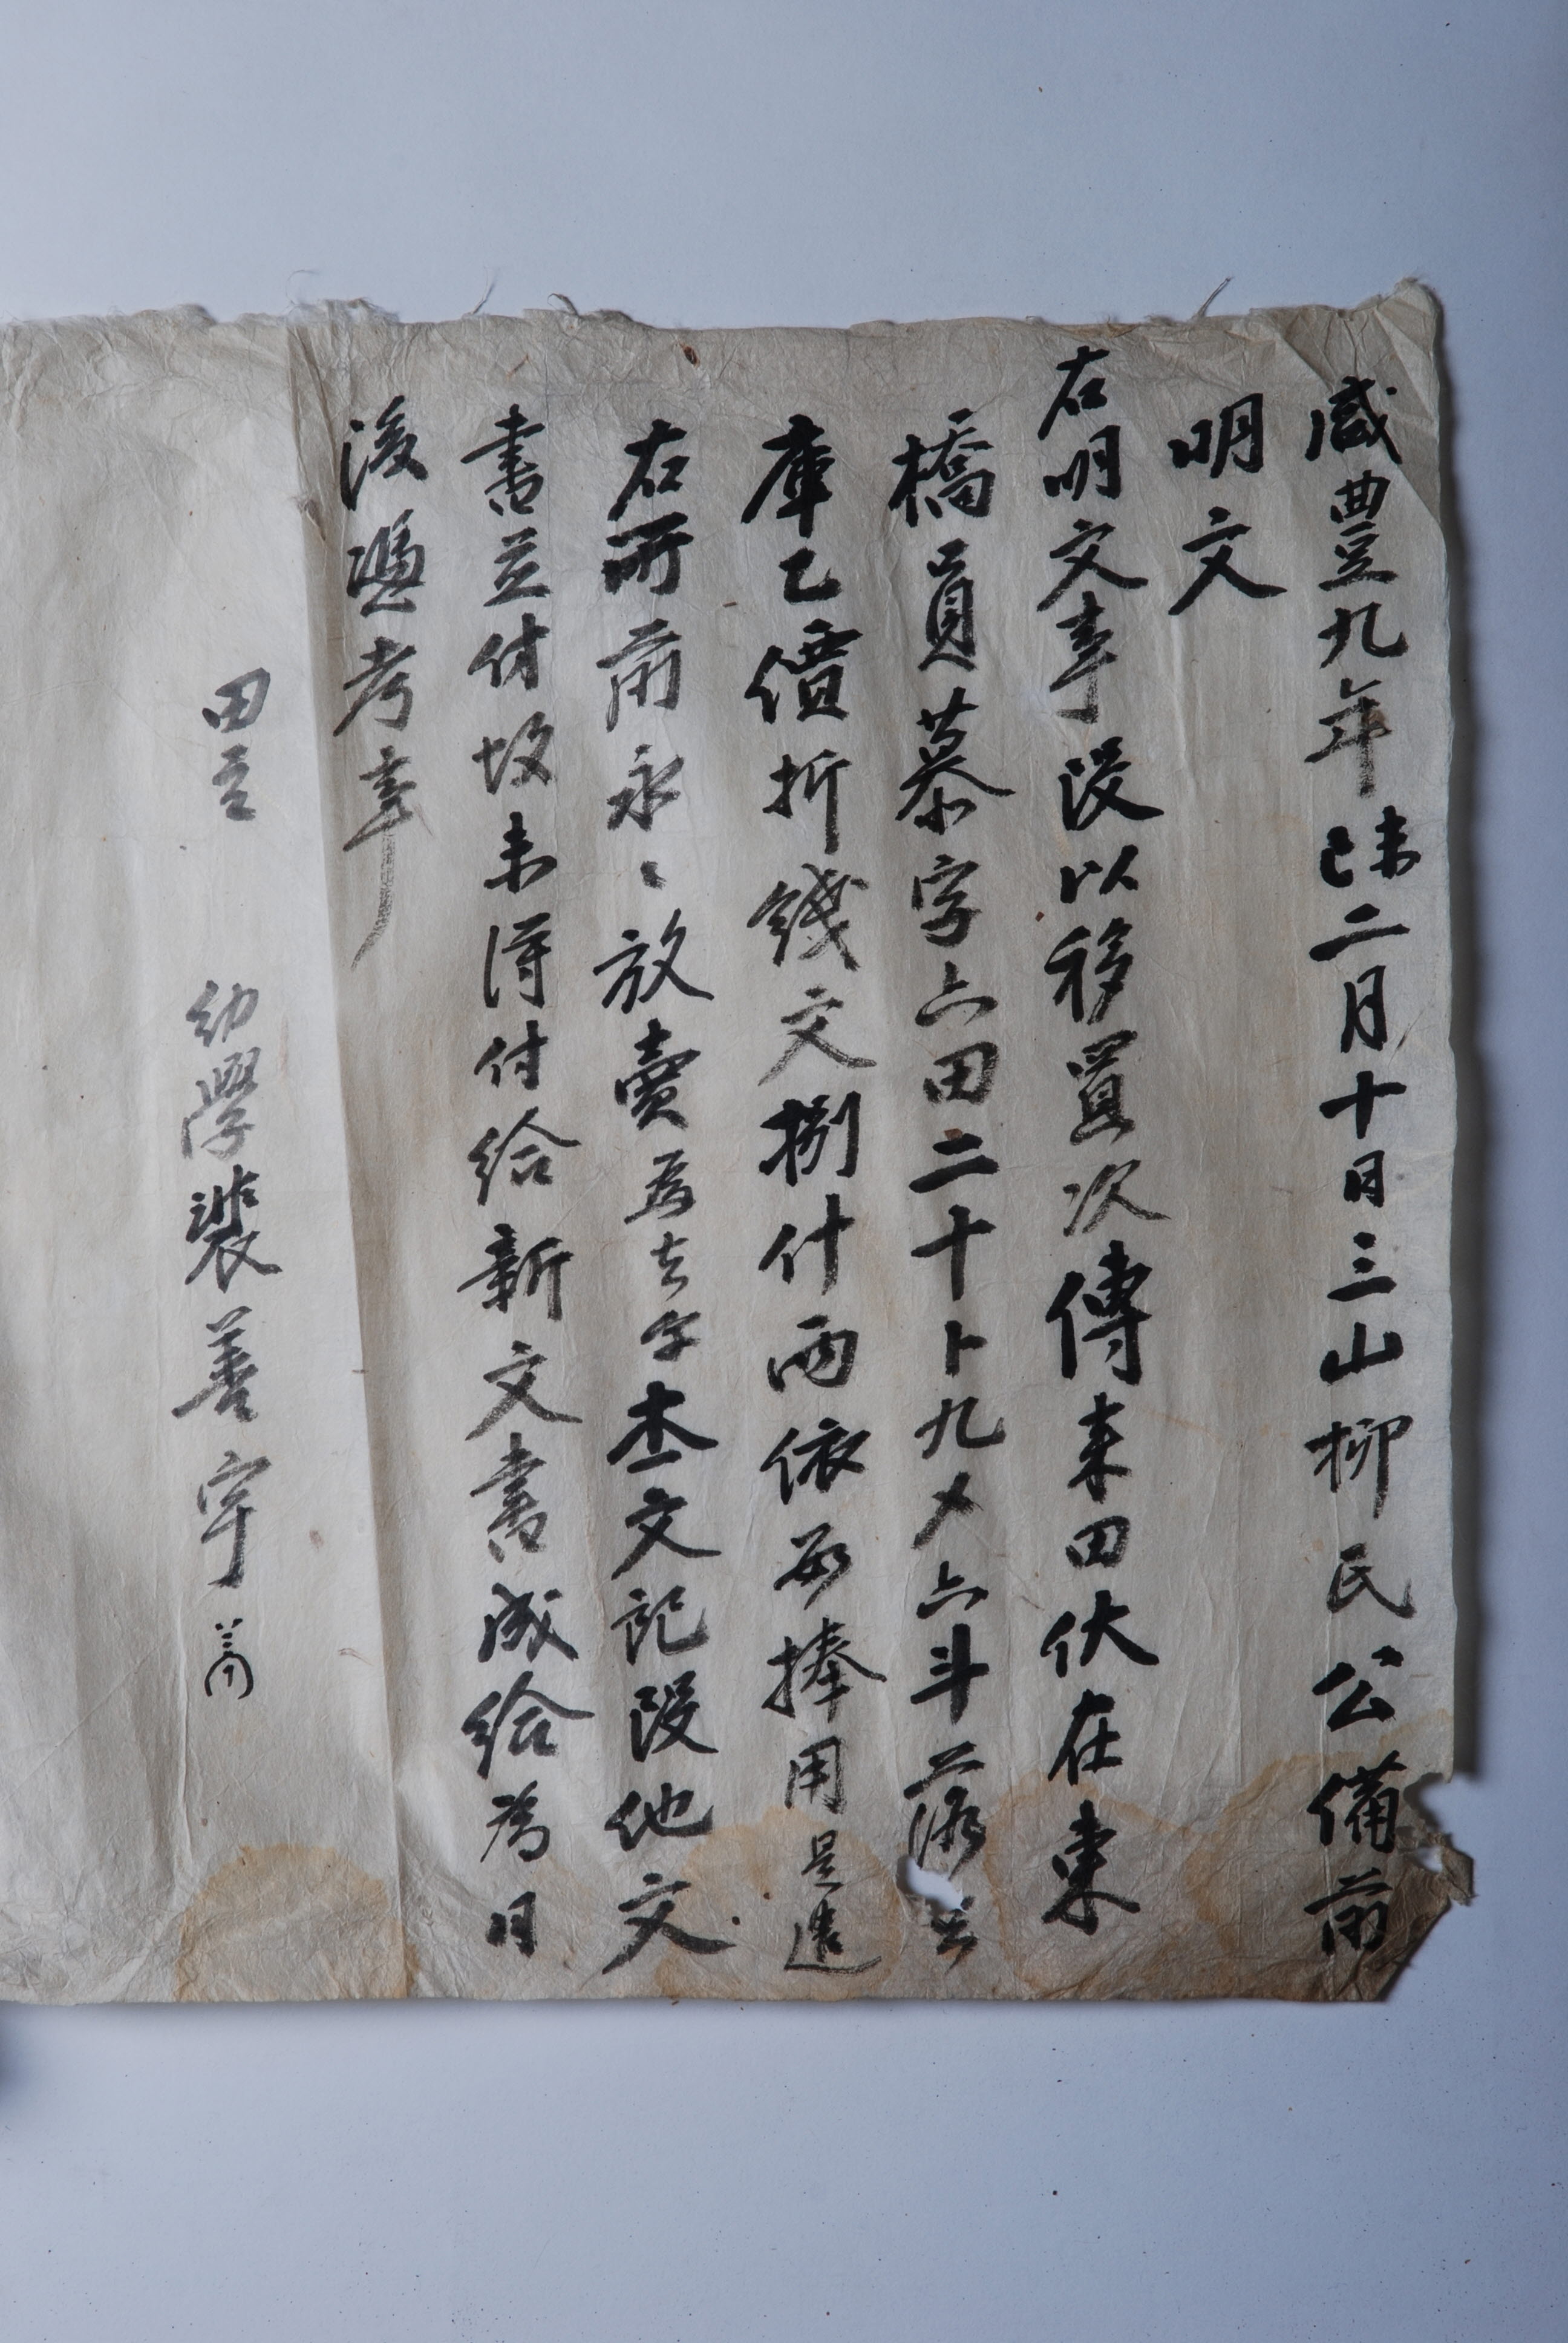 咸豊九年己未二月十日三山柳民公備前
明文
右明文事段以移置次傳来田伏在東
橋員慕字上田二十卜九夕上斗落
庫乙價折錢文捌什兩依数捧用是遣
右所前永〻放賣為去乎本文記段他文
書並付故未得付給新文書成給為日
後憑考事
田主 幼學裴善宇